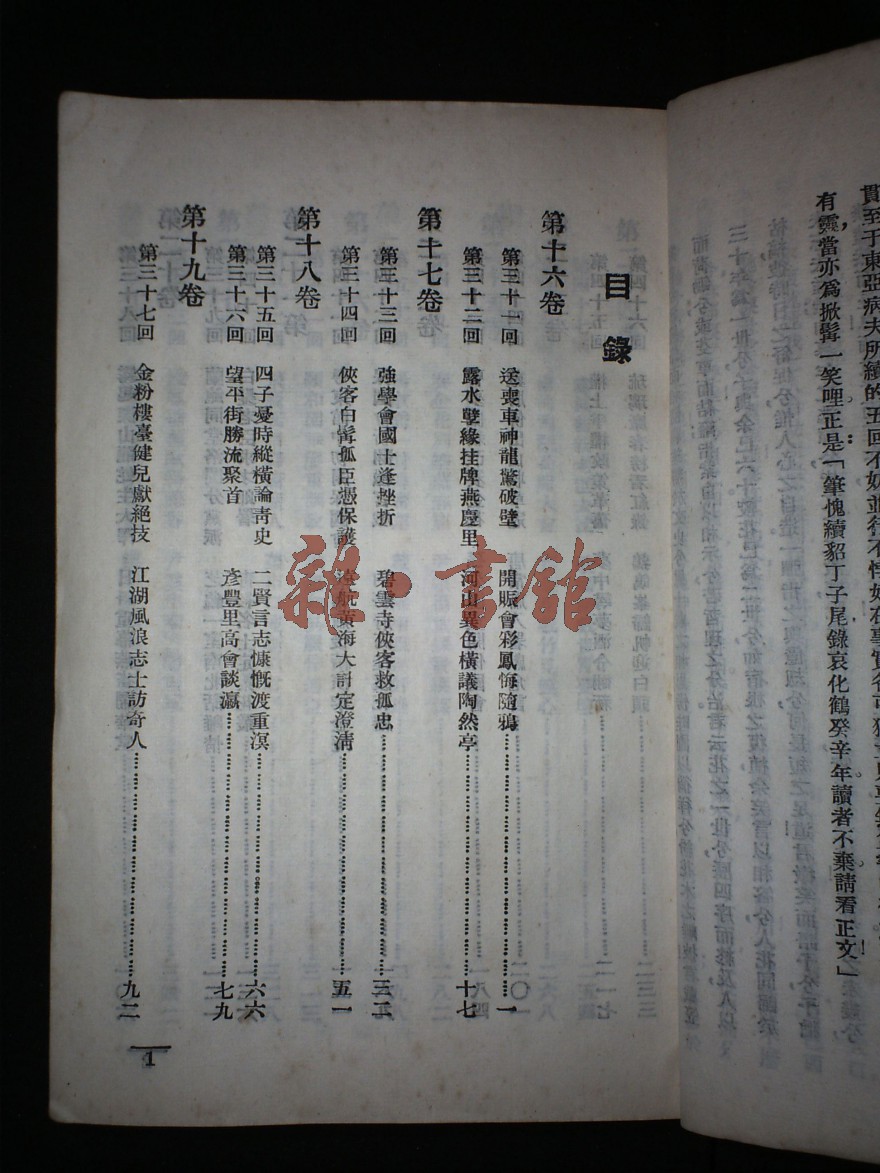 有靈當亦為掀髯一笑哩正是「筆愧續貂丁子尾錄哀化鶴癸辛年讀者不棄請看正文」
目錄
第十六卷
第三十一回 送喪車神龍驚破壁 開賑會彩鳳悔隨鴉 一
第三十二回 露水孽緣挂牌燕慶里 河山異色橫議陶然亭 十七
第十七卷
第三十三回 強學會國士逢挫折 碧雲寺俠客救孤忠 三二
第三十四回 俠客白髯孤臣憑保護 航黃海大計定澄清 五一
第十八卷
第三十五回 四子憂時縱橫論靑史 二賢言志慷慨渡重溟 六六
第三十六回 望平街勝流聚首 彥豐里高會談瀛 七九
第十九卷
第三十七回 金粉樓臺健兒獻絕技 江湖風浪志士訪奇人 九二
1
雜·書館